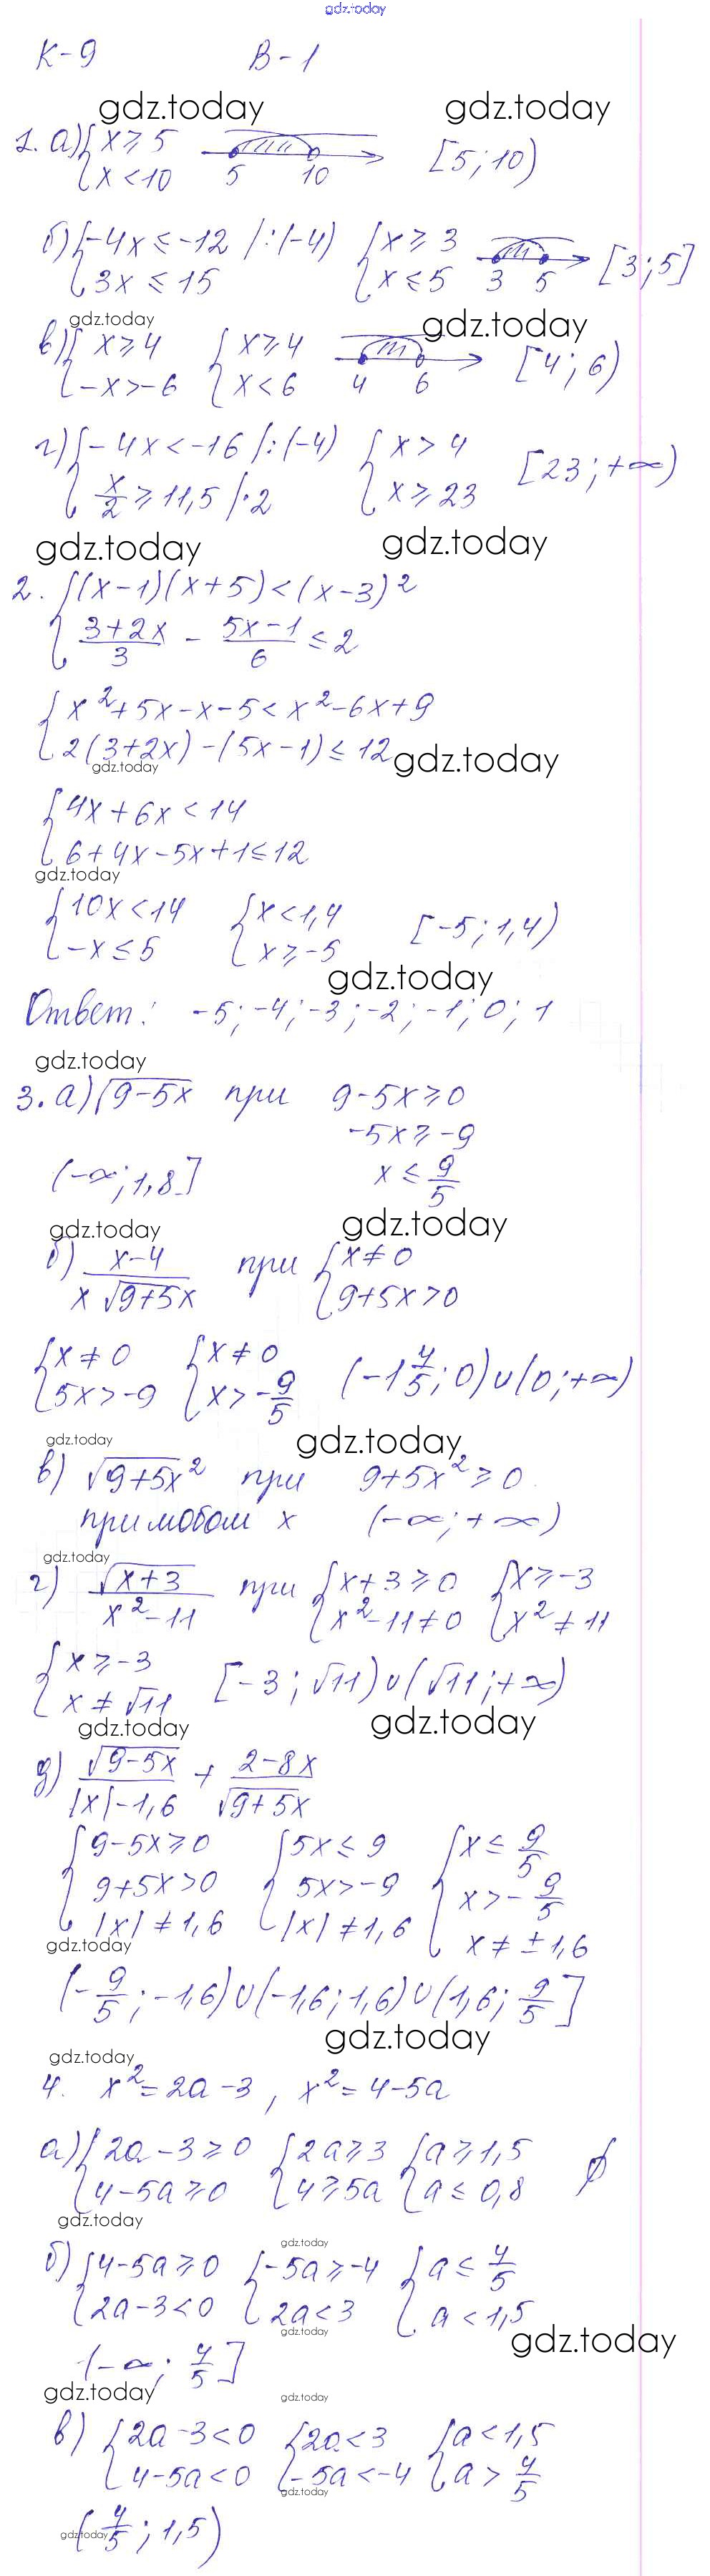 gdz.today
К-9 В-1
gdz.today gdz.today
1. а) { x ≥ 5 5 10 [5; 10)
x < 10
б) { -4x ≤ -12 |:(-4) { x ≥ 3 3 5 [3; 5]
3x ≤ 15 x ≤ 5
gdz.today gdz.today
в) { x ≥ 4 { x ≥ 4 4 6 [4; 6)
-x > -6 x < 6
г) { -4x < -16 |:(-4) { x > 4 [23; +∞)
x/2 ≥ 11,5 |·2 x ≥ 23
gdz.today gdz.today
2. { (x-1)(x+5) < (x-3)²
(3+2x)/3 - (5x-1)/6 ≤ 2
{ x²+5x-x-5 < x²-6x+9
2(3+2x)-(5x-1) ≤ 12
gdz.today gdz.today
{ 4x+6x < 14
6+4x-5x+1 ≤ 12
gdz.today
{ 10x < 14 { x < 1,4 [-5; 1,4)
-x ≤ 5 x ≥ -5
gdz.today
Ответ: -5; -4; -3; -2; -1; 0; 1
gdz.today
3. а) √(9-5x) при 9-5x ≥ 0
-5x ≥ -9
(-∞; 1,8] x ≤ 9/5
gdz.today gdz.today
б) (x-4)/(x√(9+5x)) при { x ≠ 0
9+5x > 0
{ x ≠ 0 { x ≠ 0 (-1 4/5; 0)∪(0; +∞)
5x > -9 x > -9/5
gdz.today gdz.today
в) √(9+5x²) при 9+5x² ≥ 0
при любом x (-∞; +∞)
gdz.today
г) √(x+3)/(x²-11) при { x+3 ≥ 0 { x ≥ -3
x²-11 ≠ 0 x² ≠ 11
{ x ≥ -3 [-3; √11)∪(√11; +∞)
x ≠ √11
gdz.today gdz.today
д) √(9-5x)/(|x|-1,6) + (2-8x)/√(9+5x)
{ 9-5x ≥ 0 { 5x ≤ 9 { x ≤ 9/5
9+5x > 0 5x > -9 x > -9/5
|x| ≠ 1,6 |x| ≠ 1,6 x ≠ ±1,6
gdz.today
(-9/5; -1,6)∪(-1,6; 1,6)∪(1,6; 9/5]
gdz.today
gdz.today
4. x² = 2a-3, x² = 4-5a
а) { 2a-3 ≥ 0 { 2a ≥ 3 { a ≥ 1,5 ∅
4-5a ≥ 0 4 ≥ 5a a ≤ 0,8
gdz.today
gdz.today
б) { 4-5a ≥ 0 { -5a ≥ -4 { a ≤ 4/5
2a-3 < 0 2a < 3 a < 1,5
gdz.today gdz.today
(-∞; 4/5]
gdz.today gdz.today
в) { 2a-3 < 0 { 2a < 3 { a < 1,5
4-5a < 0 -5a < -4 a > 4/5
gdz.today
(4/5; 1,5)
gdz.today